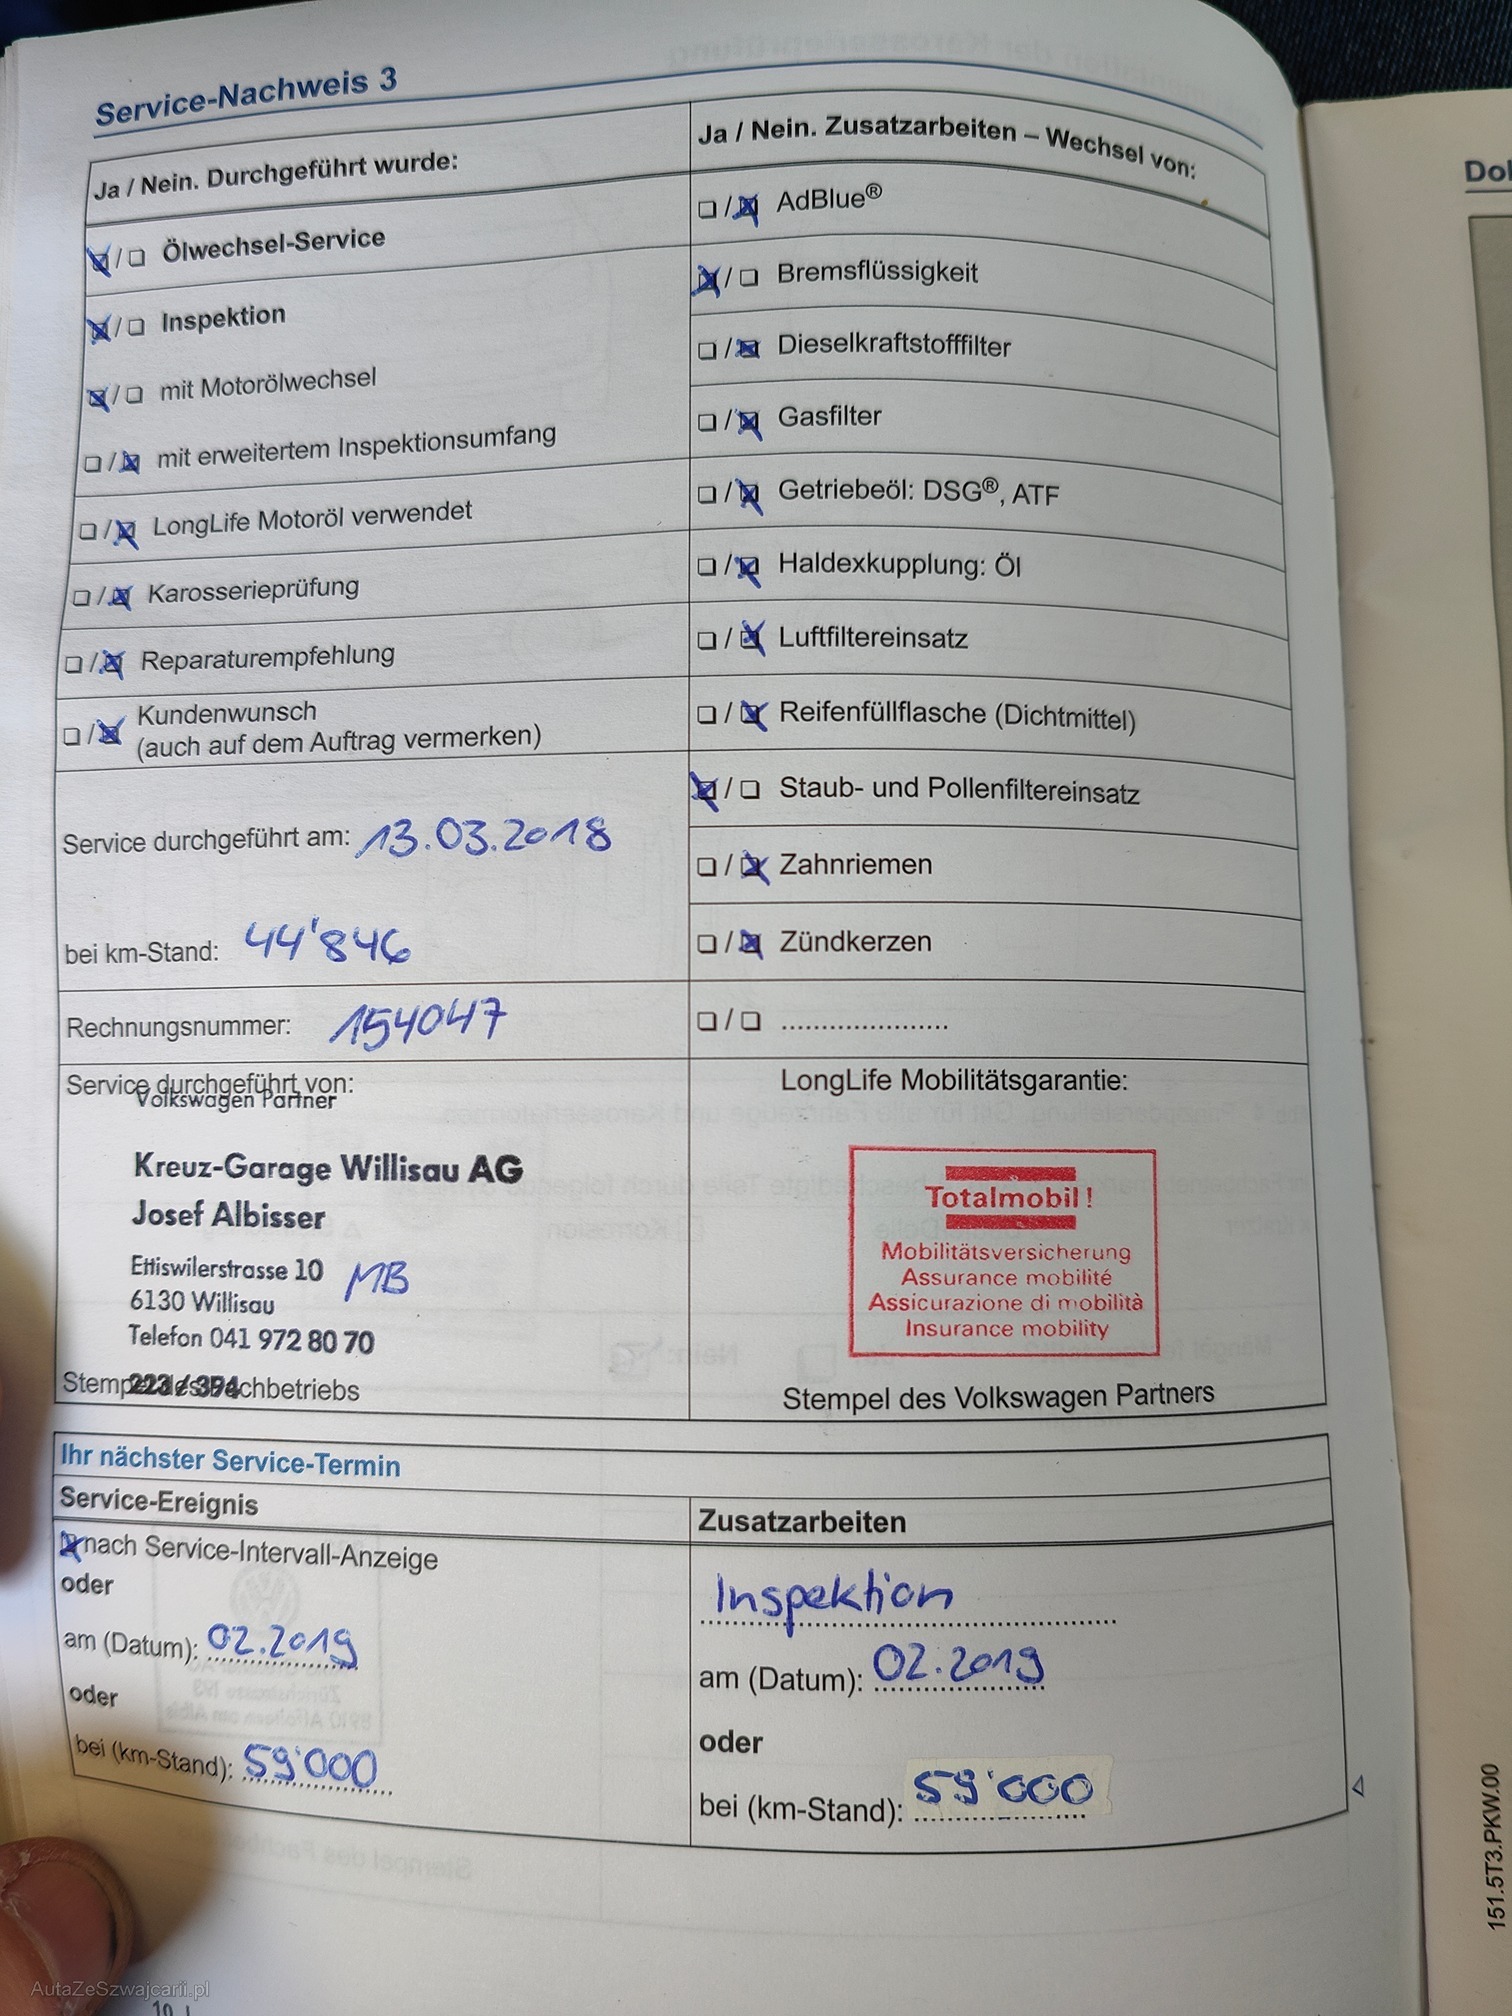 Service-Nachweis 3
Ja / Nein. Durchgeführt wurde:
☒/☐ Ölwechsel-Service
☒/☐ Inspektion
☒/☐ mit Motorölwechsel
☐/☒ mit erweitertem Inspektionsumfang
☐/☒ LongLife Motoröl verwendet
☐/☒ Karosserieprüfung
☐/☒ Reparaturempfehlung
☐/☒ Kundenwunsch
(auch auf dem Auftrag vermerken)
Service durchgeführt am: 13.03.2018
bei km-Stand: 44'846
Rechnungsnummer: 154047
Service durchgeführt von:
Volkswagen Partner
Kreuz-Garage Willisau AG
Josef Albisser
Ettiswilerstrasse 10 MB
6130 Willisau
Telefon 041 972 80 70
223 / 394
Stempel des Fachbetriebs
Ja / Nein. Zusatzarbeiten – Wechsel von:
☐/☒ AdBlue®
☒/☐ Bremsflüssigkeit
☐/☒ Dieselkraftstofffilter
☐/☒ Gasfilter
☐/☒ Getriebeöl: DSG®, ATF
☐/☒ Haldexkupplung: Öl
☐/☒ Luftfiltereinsatz
☐/☒ Reifenfüllflasche (Dichtmittel)
☒/☐ Staub- und Pollenfiltereinsatz
☐/☒ Zahnriemen
☐/☒ Zündkerzen
☐/☐ ......................
LongLife Mobilitätsgarantie:
Totalmobil!
Mobilitätsversicherung
Assurance mobilité
Assicurazione di mobilità
Insurance mobility
Stempel des Volkswagen Partners
Ihr nächster Service-Termin
Service-Ereignis
☒ nach Service-Intervall-Anzeige
oder
am (Datum): 02.2019
oder
bei (km-Stand): 59'000
Zusatzarbeiten
Inspektion
am (Datum): 02.2019
oder
bei (km-Stand): 59'000
151.5T3.PKW.00
AutaZeSzwajcarii.pl